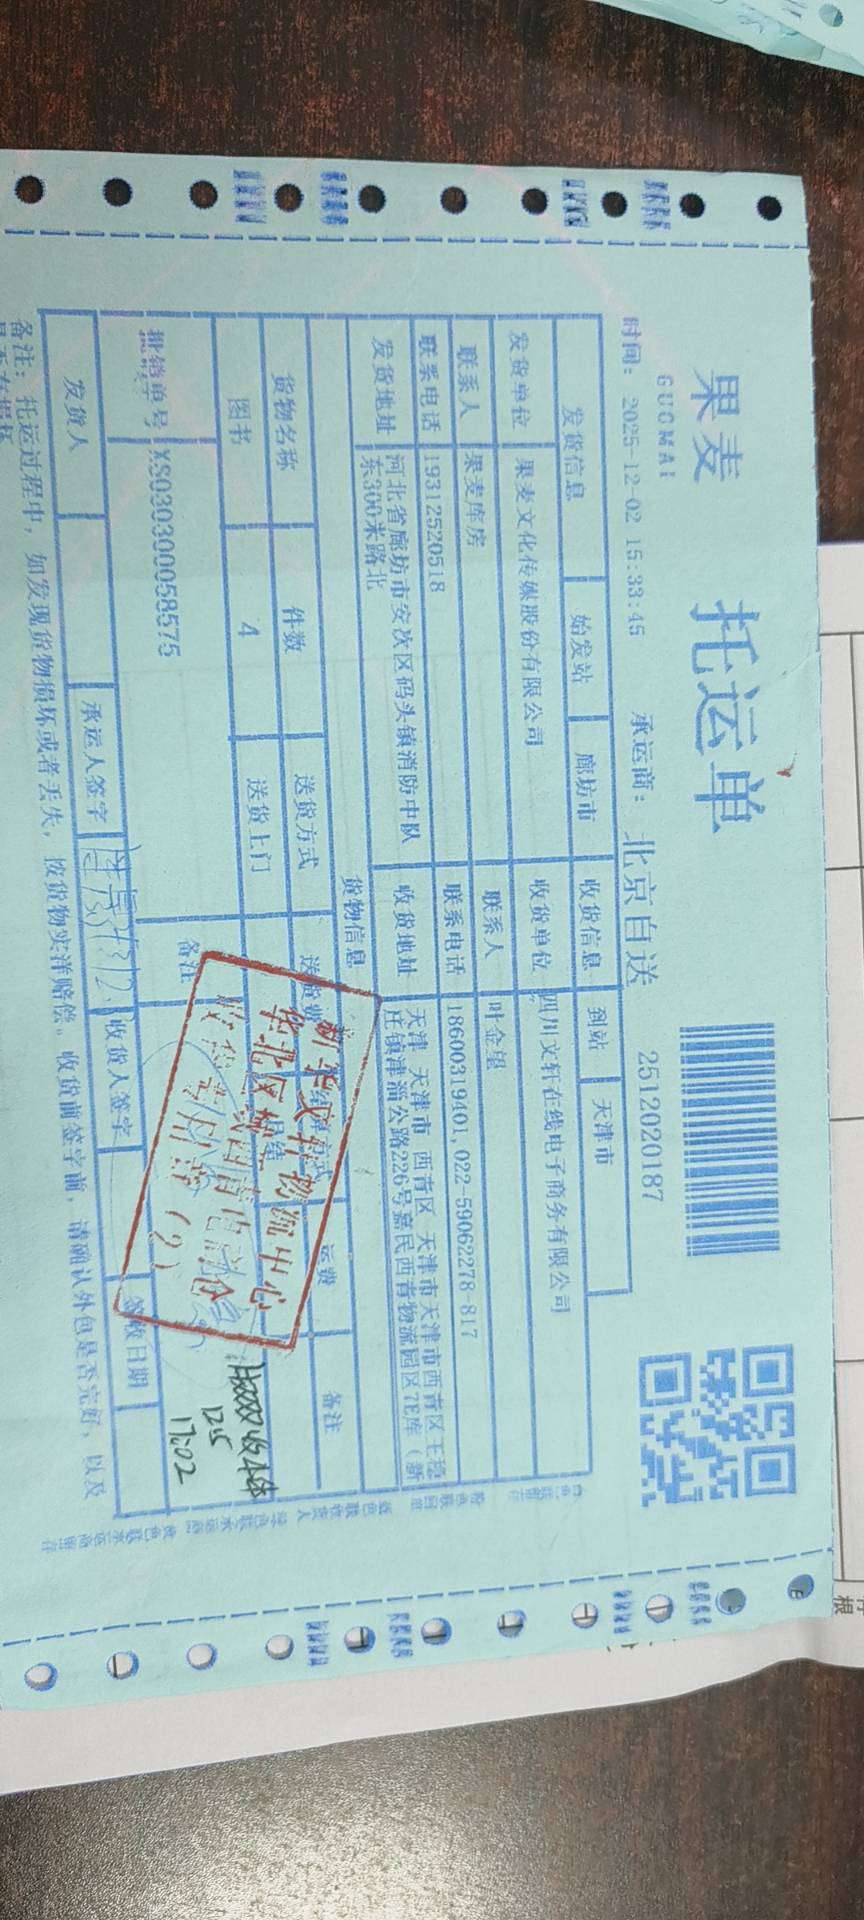 果麦
GUOMAI
托运单
时间: 2025-12-02 15:33:45 承运商: 北京自送 2512020187
发货信息 始发站 廊坊市 收货信息 到站 天津市
发货单位 果麦文化传媒股份有限公司 收货单位 四川文轩在线电子商务有限公司
联系人 果麦库房 联系人 叶金望
联系电话 19312520518 联系电话 18600319401,022-59062278-817
发货地址 河北省廊坊市安次区码头镇消防中队东300米路北 收货地址 天津 天津市 西青区 天津市天津市西青区王稳庄镇津淄公路226号嘉民西青物流园区7E库（新
货物信息
货物名称 件数 送货方式 送货费 结算方式 运费 备注
图书 4 送货上门 月结
批销单号 XS030300058575 备注
新华文轩物流中心
华北区域
收货专用章（2）
12.5
17:02
发货人 承运人签字 收货人签字 签收日期
备注: 托运过程中，如发现货物损坏或者丢失，按货物实洋赔偿。收货前签字前，请确认外包是否完好，以及
是否有损坏